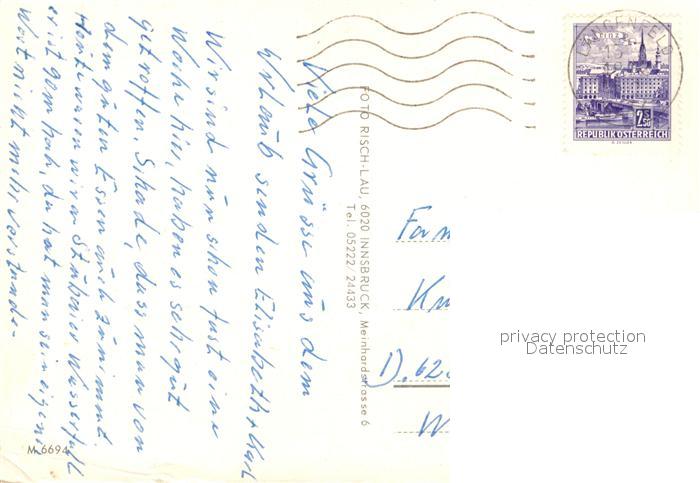 Viele Grüsse aus dem
Urlaub senden Elisabeth + Karl
Wir sind nun schon fast eine
Woche hier, haben es sehr gut
getroffen. Schade, dass man von
dem guten Essen auch zunimmt.
Heute waren wir am Stuibaier Wasserfall
er ist 90 m hoch, da hat man sein eigenes
Wort nicht mehr verstanden.
M 6694
FOTO RISCH-LAU, 6020 INNSBRUCK, Meinhardstrasse 6
Tel. 05222/24433
LÄNGENFELD
LINZ
2.50
REPUBLIK ÖSTERREICH
Fam
D. 62
W
privacy protection
Datenschutz